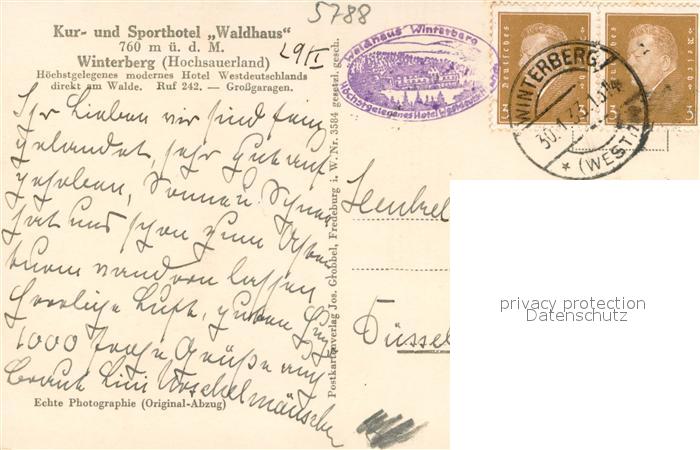 5788
Kur- und Sporthotel „Waldhaus"
760 m ü. d. M.
Winterberg (Hochsauerland)
Höchstgelegenes modernes Hotel Westdeutschlands
direkt am Walde. Ruf 242. — Großgaragen.
29/I
Waldhaus Winterberg
Höchstgelegenes Hotel Westdeutschlands
Deutsches Reich
3
Deutsches Reich
3
WINTERBERG
30.1.33.
* (WESTF.)
Ihr Lieben wir sind
gelandet, sehr gut auf
gehoben, Sonne,
hat uns schon zum
turm wandern lassen
Herrliche Luft, guten
1000 Grüße auf
Postkartenverlag Jos. Grobbel, Fredeburg i. W. Nr. 3584 gesetzl. gesch.
Henkel
Düssel
Echte Photographie (Original-Abzug)
privacy protection
Datenschutz